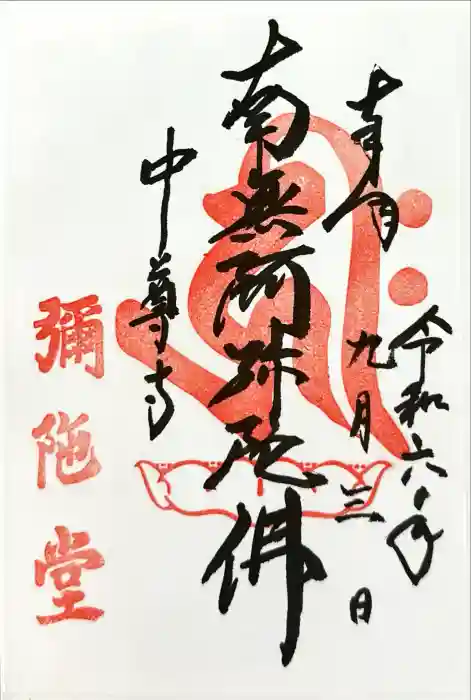 奉拝
令和六年
九月三日
南無阿弥陀佛
中尊寺
彌陀堂